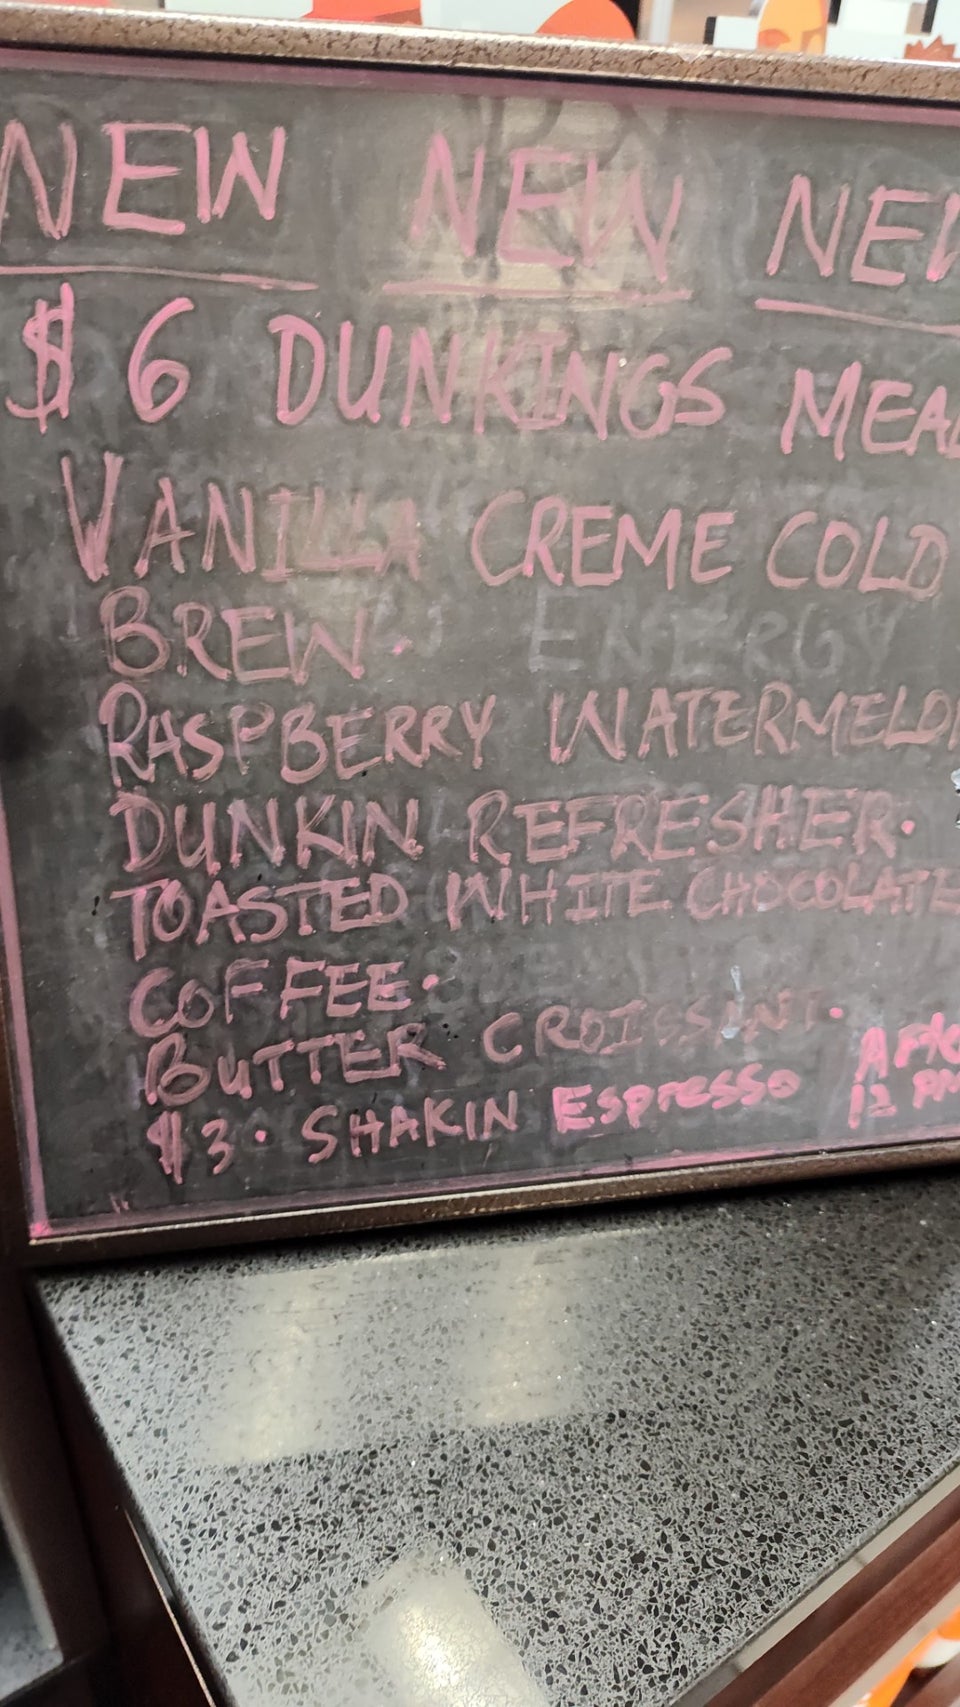 NEW NEW NEW
$6 DUNKINGS MEAL
VANILLA CREME COLD
BREW.
ENERGY
RASPBERRY WATERMELON
DUNKIN REFRESHER.
TOASTED WHITE CHOCOLATE
COFFEE.
BUTTER CROISSANT.
$3. SHAKIN ESPRESSO AFTER
12 PM